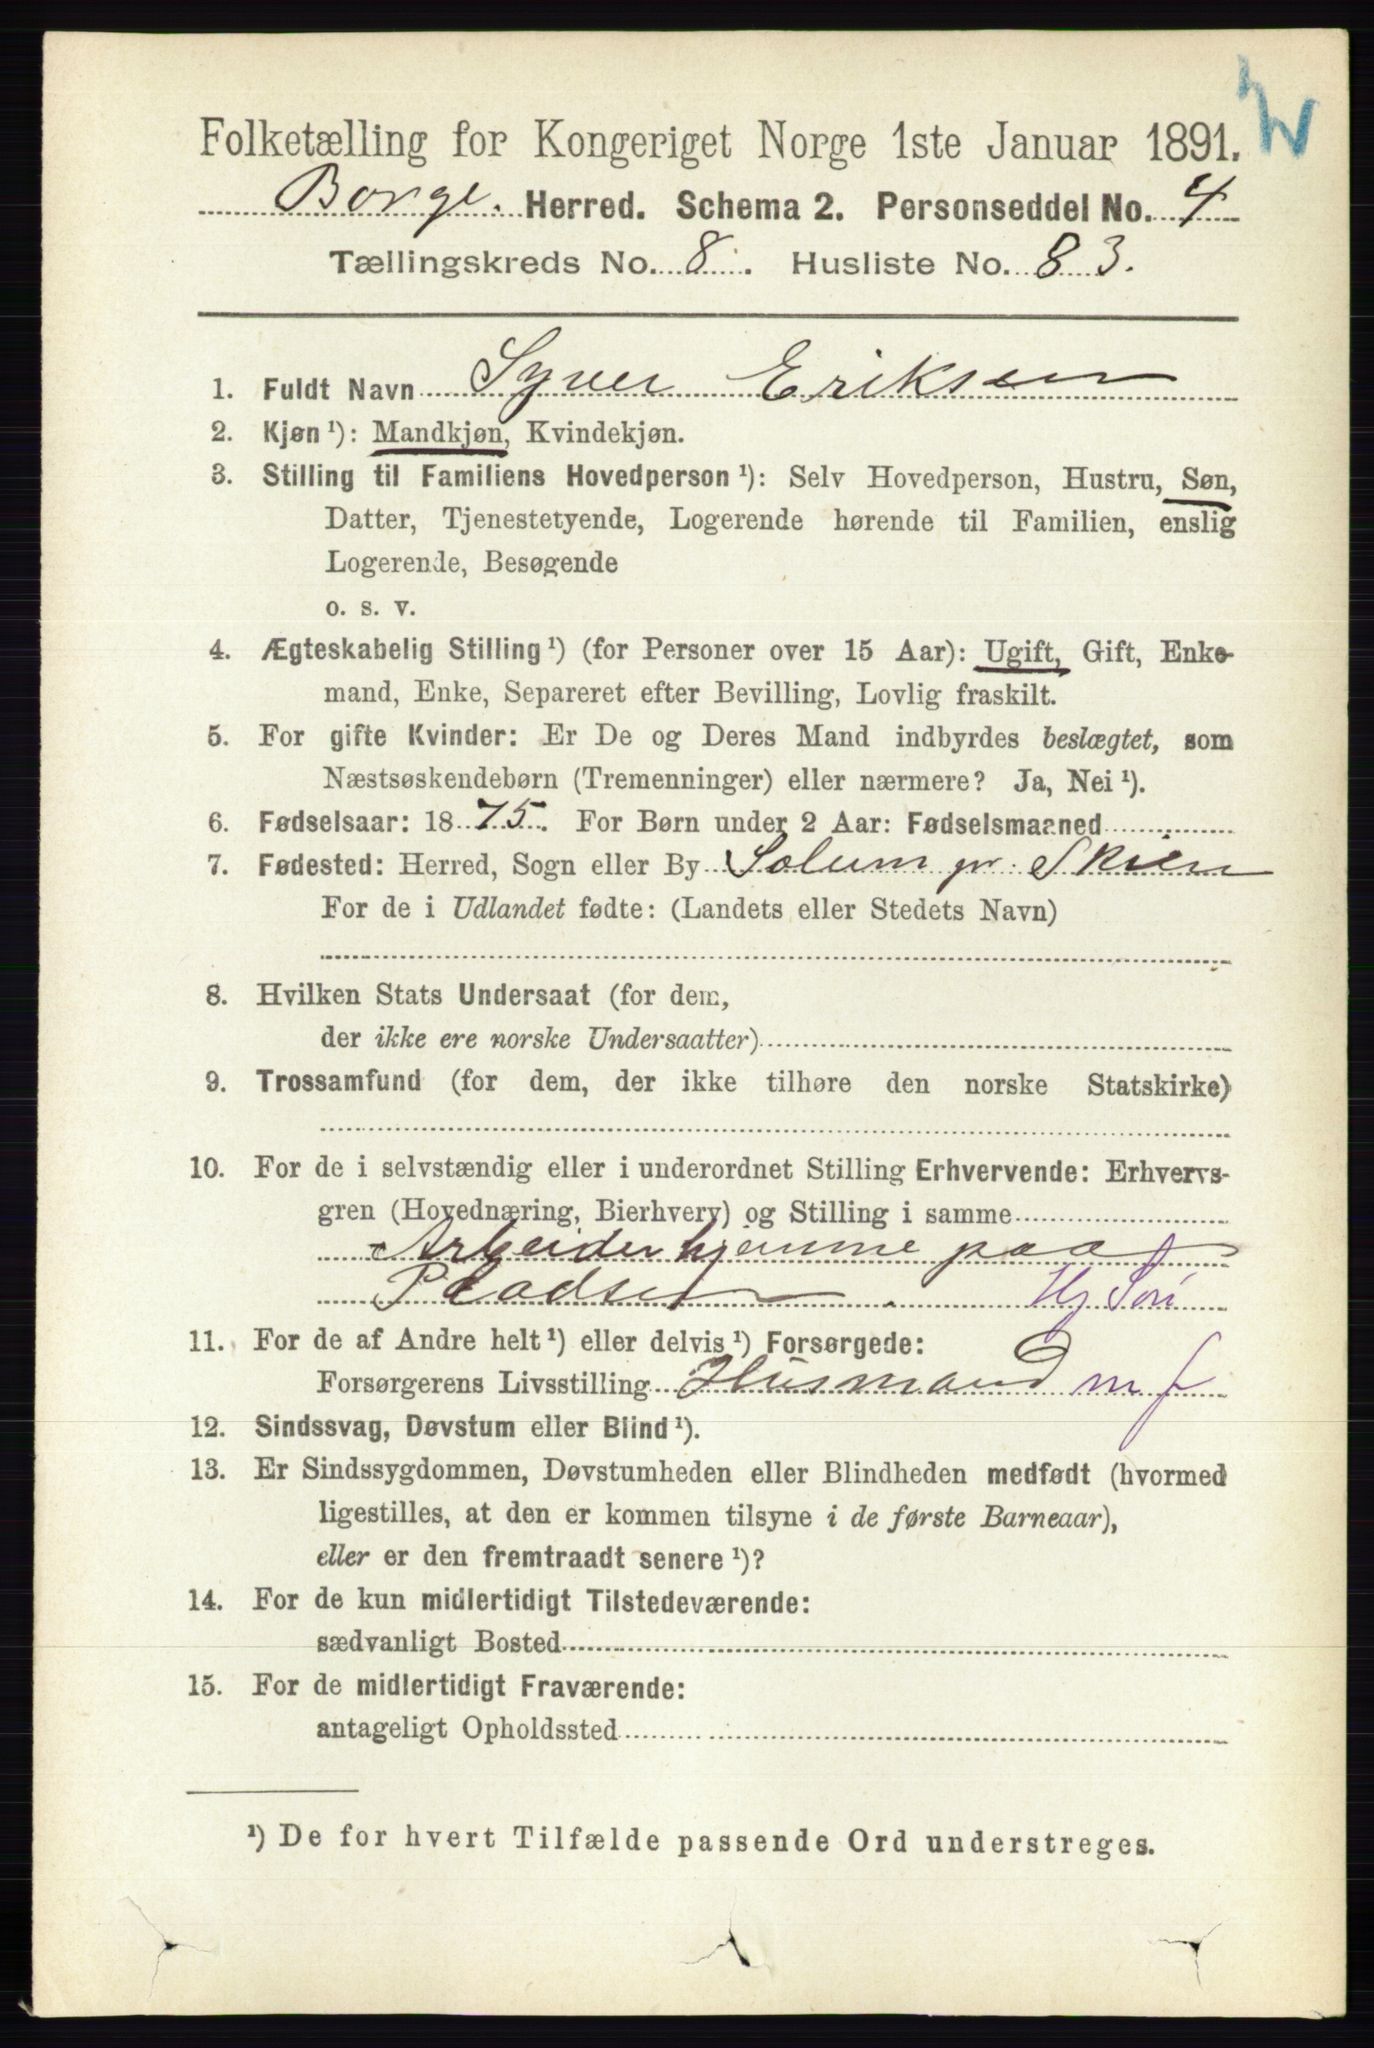 Folketælling for Kongeriget Norge 1ste Januar 1891.
Borge. Herred. Schema 2. Personseddel No. 4
Tællingskreds No. 8. Husliste No. 83.
1. Fuldt Navn Syver Eriksen
2. Kjøn ¹): Mandkjøn, Kvindekjøn.
3. Stilling til Familiens Hovedperson ¹): Selv Hovedperson, Hustru, Søn,
Datter, Tjenestetyende, Logerende hørende til Familien, enslig
Logerende, Besøgende
o. s. v.
4. Ægteskabelig Stilling ¹) (for Personer over 15 Aar): Ugift, Gift, Enke-
mand, Enke, Separeret efter Bevilling, Lovlig fraskilt.
5. For gifte Kvinder: Er De og Deres Mand indbyrdes beslægtet, som
Næstsøskendebørn (Tremenninger) eller nærmere? Ja, Nei ¹).
6. Fødselsaar: 1875. For Børn under 2 Aar: Fødselsmaaned
7. Fødested: Herred, Sogn eller By Solum pr. Skien
For de i Udlandet fødte: (Landets eller Stedets Navn)
8. Hvilken Stats Undersaat (for dem,
der ikke ere norske Undersaatter)
9. Trossamfund (for dem, der ikke tilhøre den norske Statskirke)
10. For de i selvstændig eller i underordnet Stilling Erhvervende: Erhvervs-
gren (Hovednæring, Bierhverv) og Stilling i samme
Arbeider hjemme paa
Pladsen Hj Søn
11. For de af Andre helt ¹) eller delvis ¹) Forsørgede:
Forsørgerens Livsstilling Husmand m f
12. Sindssvag, Døvstum eller Blind ¹).
13. Er Sindssygdommen, Døvstumheden eller Blindheden medfødt (hvormed
ligestilles, at den er kommen tilsyne i de første Barneaar),
eller er den fremtraadt senere ¹)?
14. For de kun midlertidigt Tilstedeværende:
sædvanligt Bosted
15. For de midlertidigt Fraværende:
antageligt Opholdssted
¹) De for hvert Tilfælde passende Ord understreges.